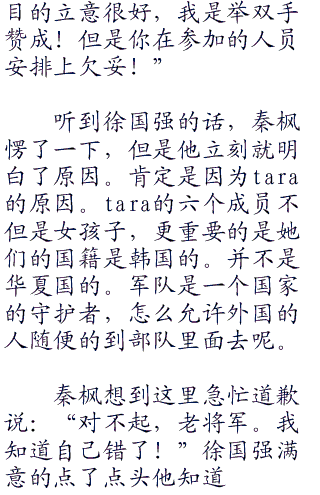 目的立意很好，我是举双手
赞成！但是你在参加的人员
安排上欠妥！”
听到徐国强的话，秦枫
愣了一下，但是他立刻就明
白了原因。肯定是因为tara
的原因。tara的六个成员不
但是女孩子，更重要的是她
们的国籍是韩国的。并不是
华夏国的。军队是一个国家
的守护者，怎么允许外国的
人随便的到部队里面去呢。
秦枫想到这里急忙道歉
说：“对不起，老将军。我
知道自己错了！”徐国强满
意的点了点头他知道